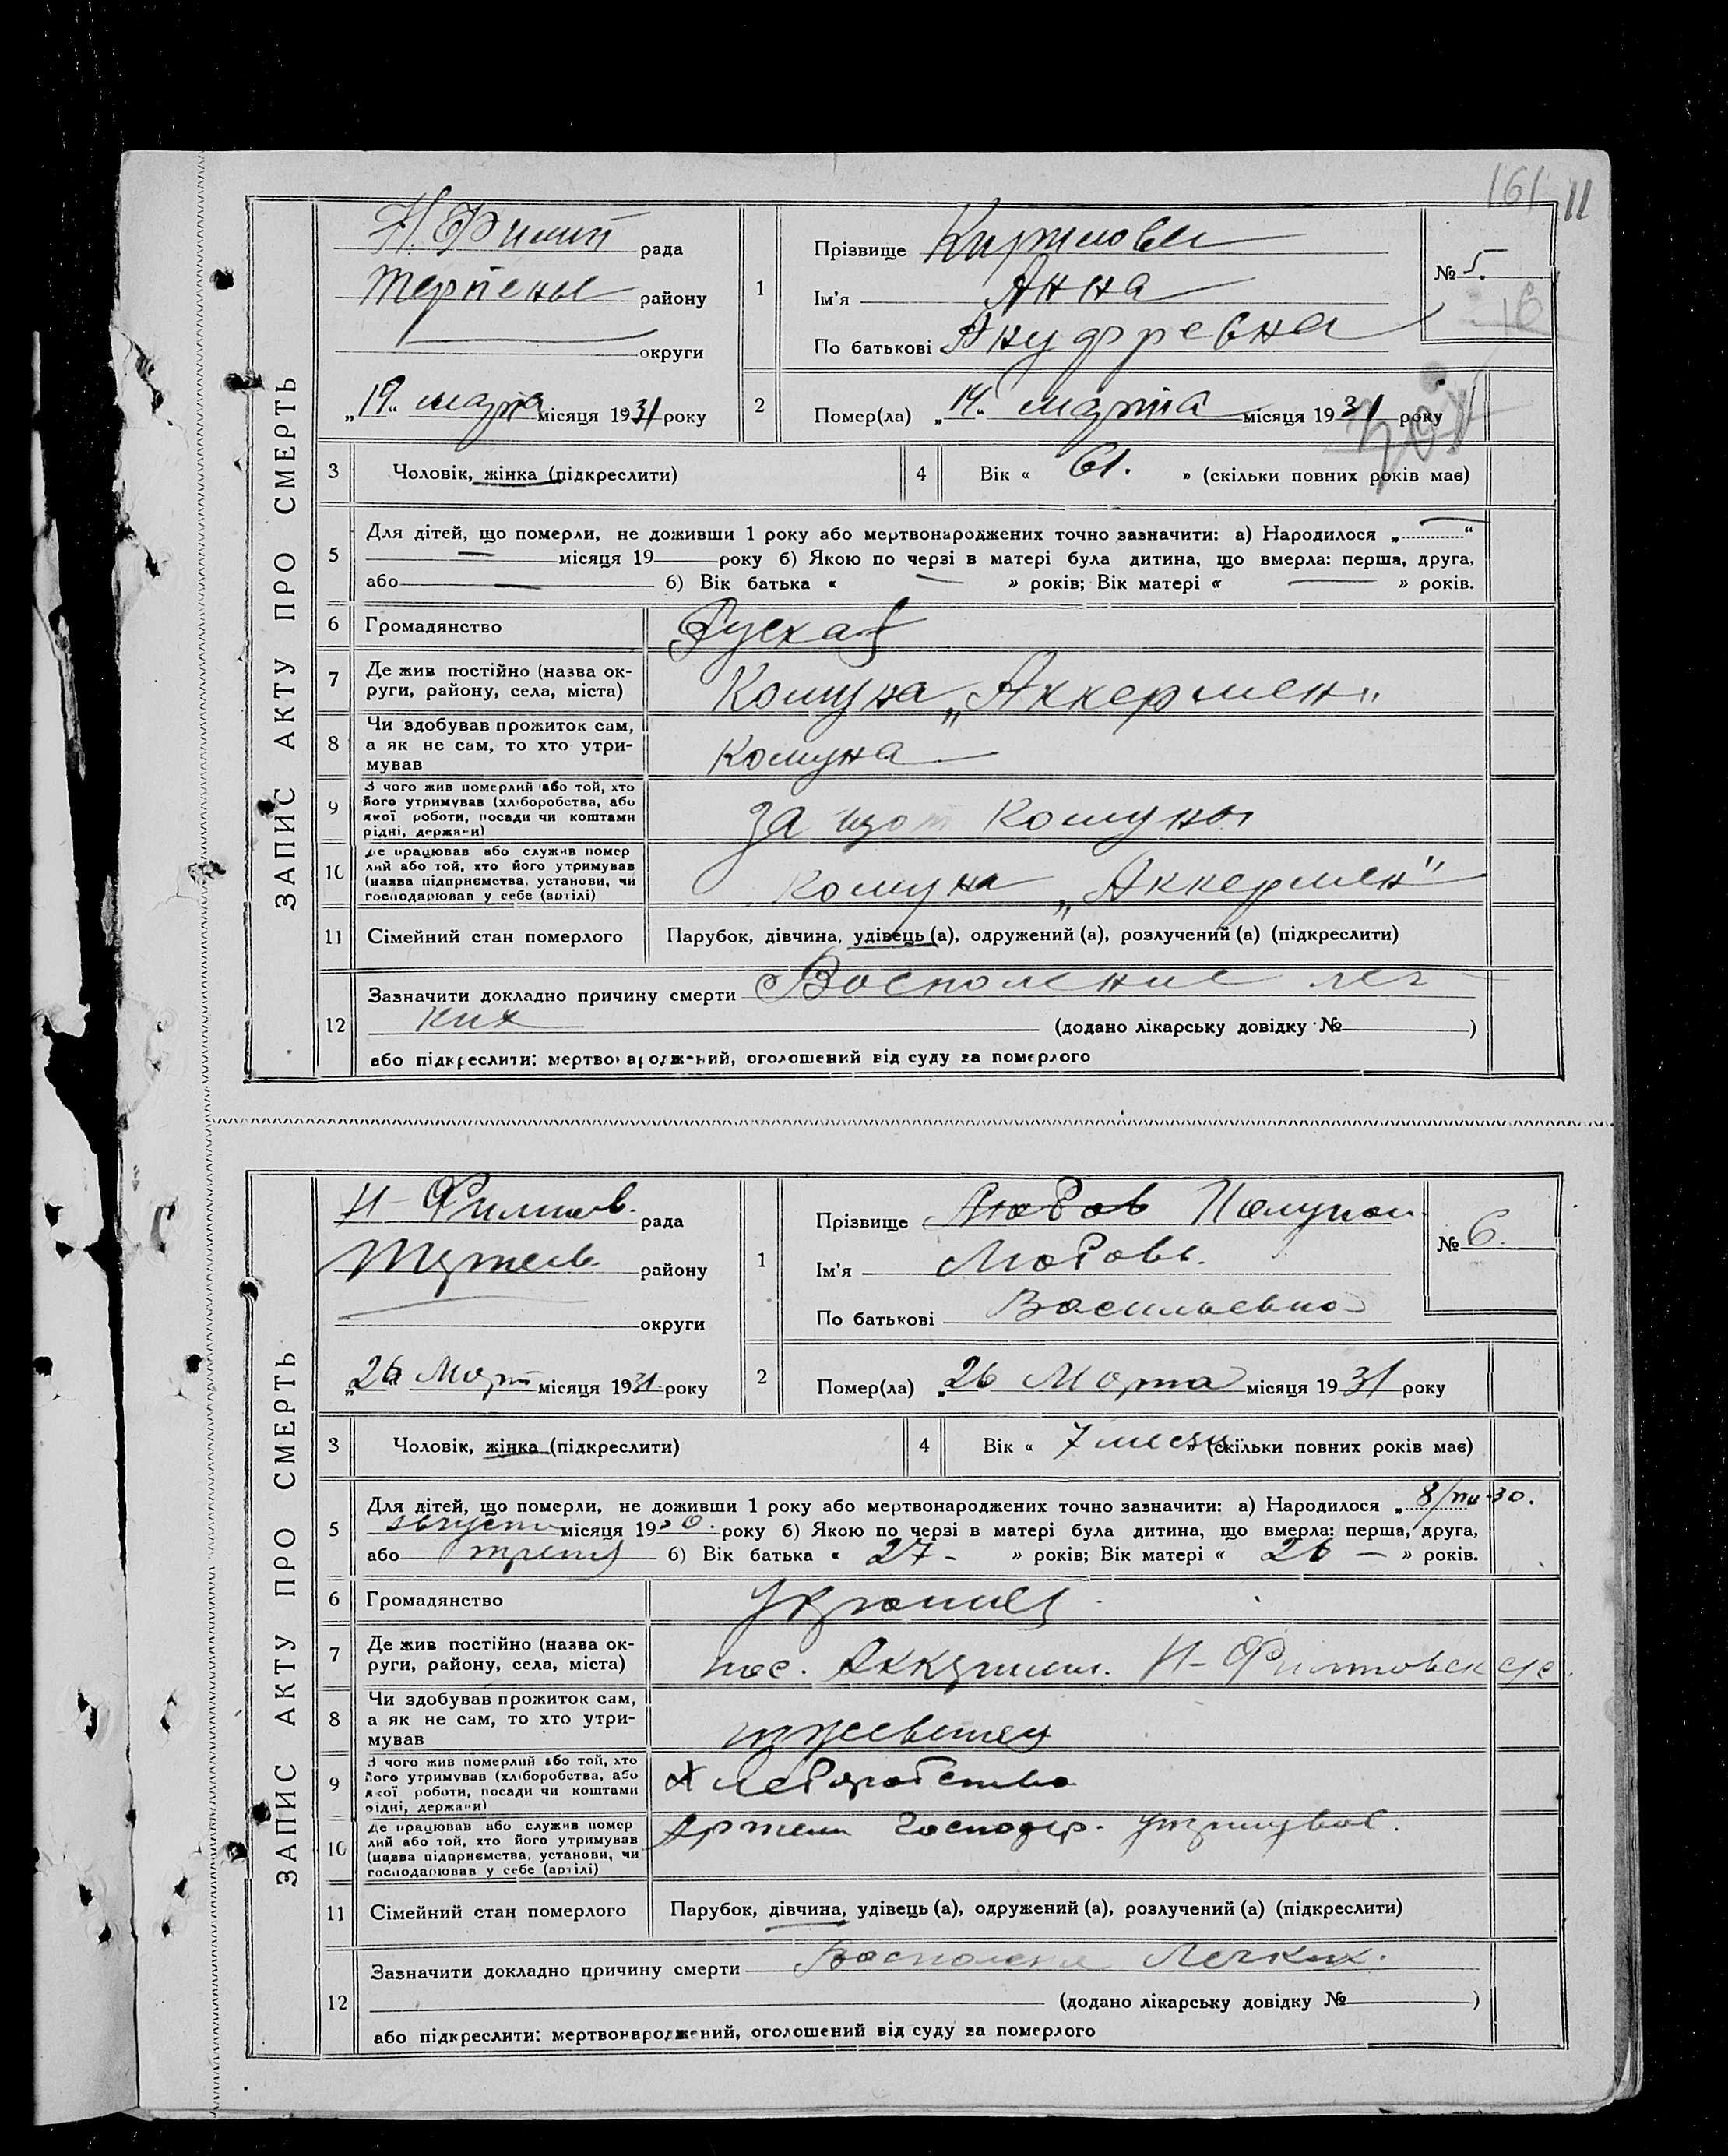 161 11
ЗАПИС АКТУ ПРО СМЕРТЬ
Н. Филип рада
Терпенье району
округи
„19“ марта місяця 1931 року
1
Прізвище Кирилова
Ім'я Анна
По батькові Ануфревна
№ 5.
16
2
Помер(ла) „14“ марта місяця 1931 року
3 Чоловік, жінка (підкреслити)
4 Вік « 61. » (скільки повних років має)
5 Для дітей, що померли, не доживши 1 року або мертвонароджених точно зазначити: а) Народилося „ — “
— місяця 19 року б) Якою по черзі в матері була дитина, що вмерла: перша, друга,
або — б) Вік батька « — » років; Вік матері « — » років.
6 Громадянство Руская
7 Де жив постійно (назва округи, району, села, міста) Комуна „Аккермен“
8 Чи здобував прожиток сам, а як не сам, то хто утримував комуна
9 З чого жив померлий або той, хто його утримував (хліборобства, або якої роботи, посади чи коштами рідні, держави) за щот комуны
10 Де працював або служив померлий або той, хто його утримував (назва підприємства, установи, чи господарював у себе (артілі) комуна „Аккермен“
11 Сімейний стан померлого Парубок, дівчина, удівець (а), одружений (а), розлучений (а) (підкреслити)
12 Зазначити докладно причину смерти Восполение лег
ких (додано лікарську довідку № )
або підкреслити: мертвонароджений, оголошений від суду за померлого
ЗАПИС АКТУ ПРО СМЕРТЬ
Н-Филипов. рада
району
округи
„26“ Март місяця 1931 року
1
Прізвище Любов
Ім'я Любовь.
По батькові Васильевна
№ 6.
2
Помер(ла) „26 Марта місяця 1931 року
3 Чоловік, жінка (підкреслити)
4 Вік « 7 месяц » (скільки повних років має)
5 Для дітей, що померли, не доживши 1 року або мертвонароджених точно зазначити: а) Народилося „ 8/ 30.
августа місяця 1930. року б) Якою по черзі в матері була дитина, що вмерла: перша, друга,
або третя б) Вік батька « 27 - » років; Вік матері « 26 — » років.
6 Громадянство
7 Де жив постійно (назва округи, району, села, міста) пос. Аккермен. Н-Филиповск с/с
8 Чи здобував прожиток сам, а як не сам, то хто утримував
9 З чого жив померлий або той, хто його утримував (хліборобства, або якої роботи, посади чи коштами рідні, держави) Хлеборобство
10 Де працював або служив померлий або той, хто його утримував (назва підприємства, установи, чи господарював у себе (артілі) Артели господар.
11 Сімейний стан померлого Парубок, дівчина, удівець (а), одружений (а), розлучений (а) (підкреслити)
12 Зазначити докладно причину смерти Восполения Легких.
(додано лікарську довідку № )
або підкреслити: мертвонароджений, оголошений від суду за померлого